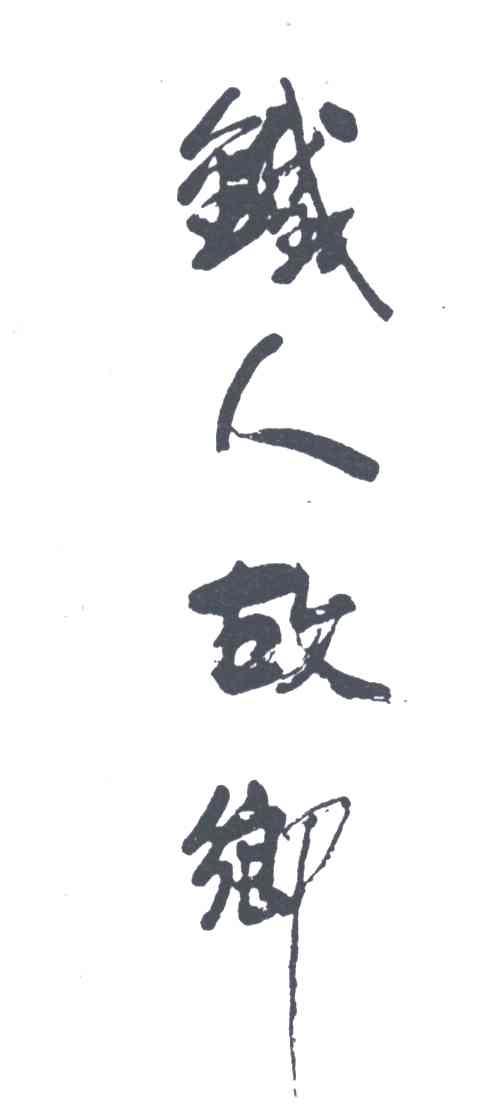 鐵人故鄉